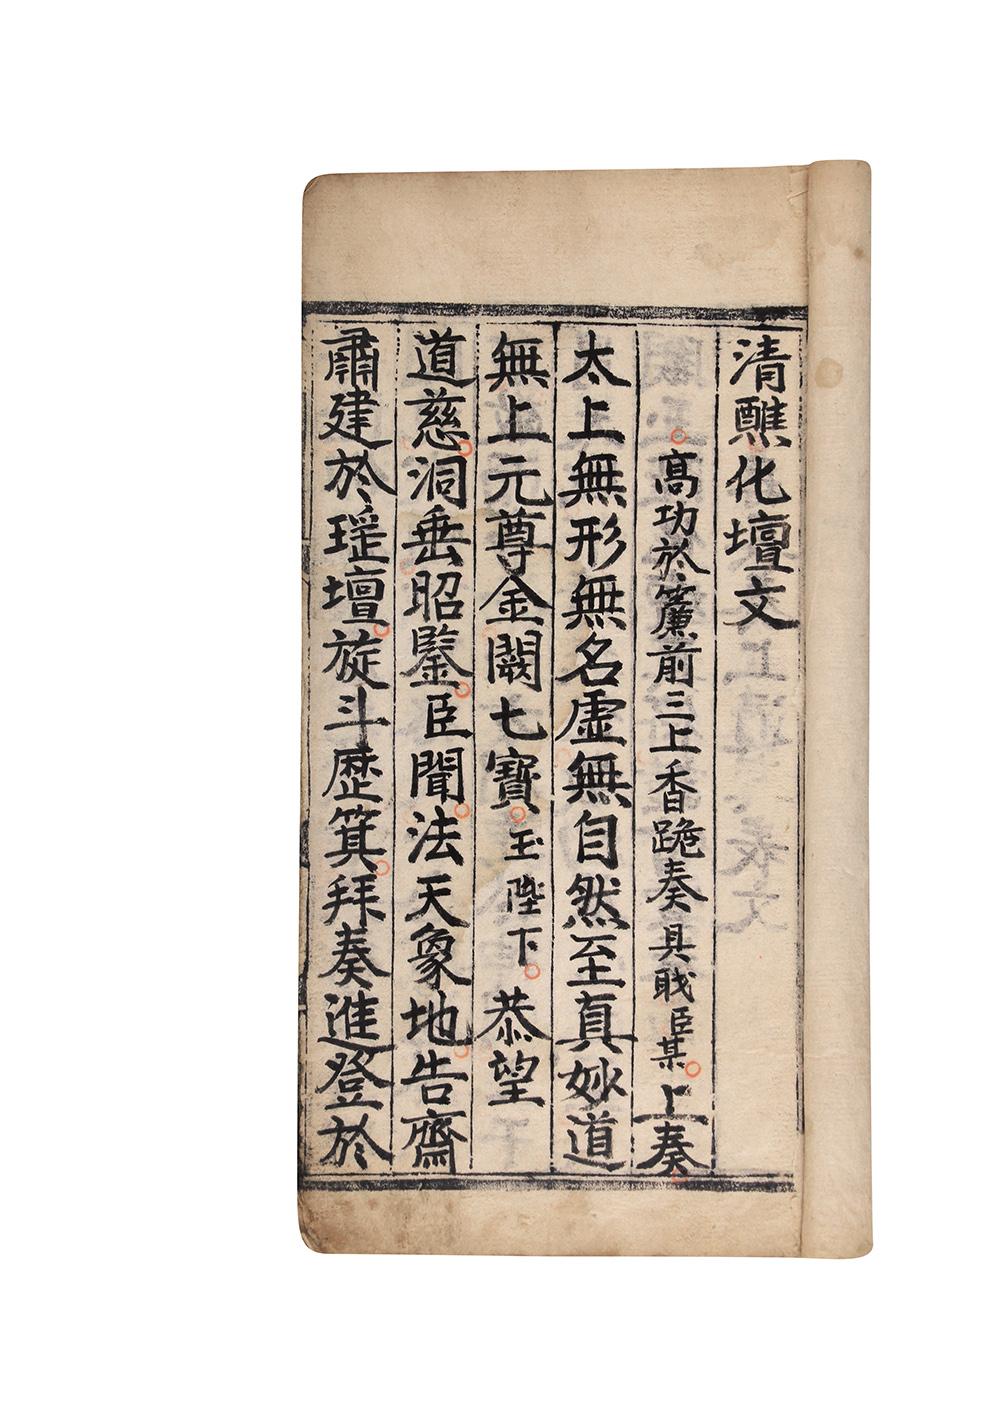 清醮化壇文
高功於簾前三上香跪奏具职臣某上奏
太上無形無名虛無自然至真妙道
無上元尊金闕七寶玉陛下恭望
道慈洞垂昭鑒臣聞法天象地告齋
肅建於瑶壇旋斗歷箕拜奏進登於